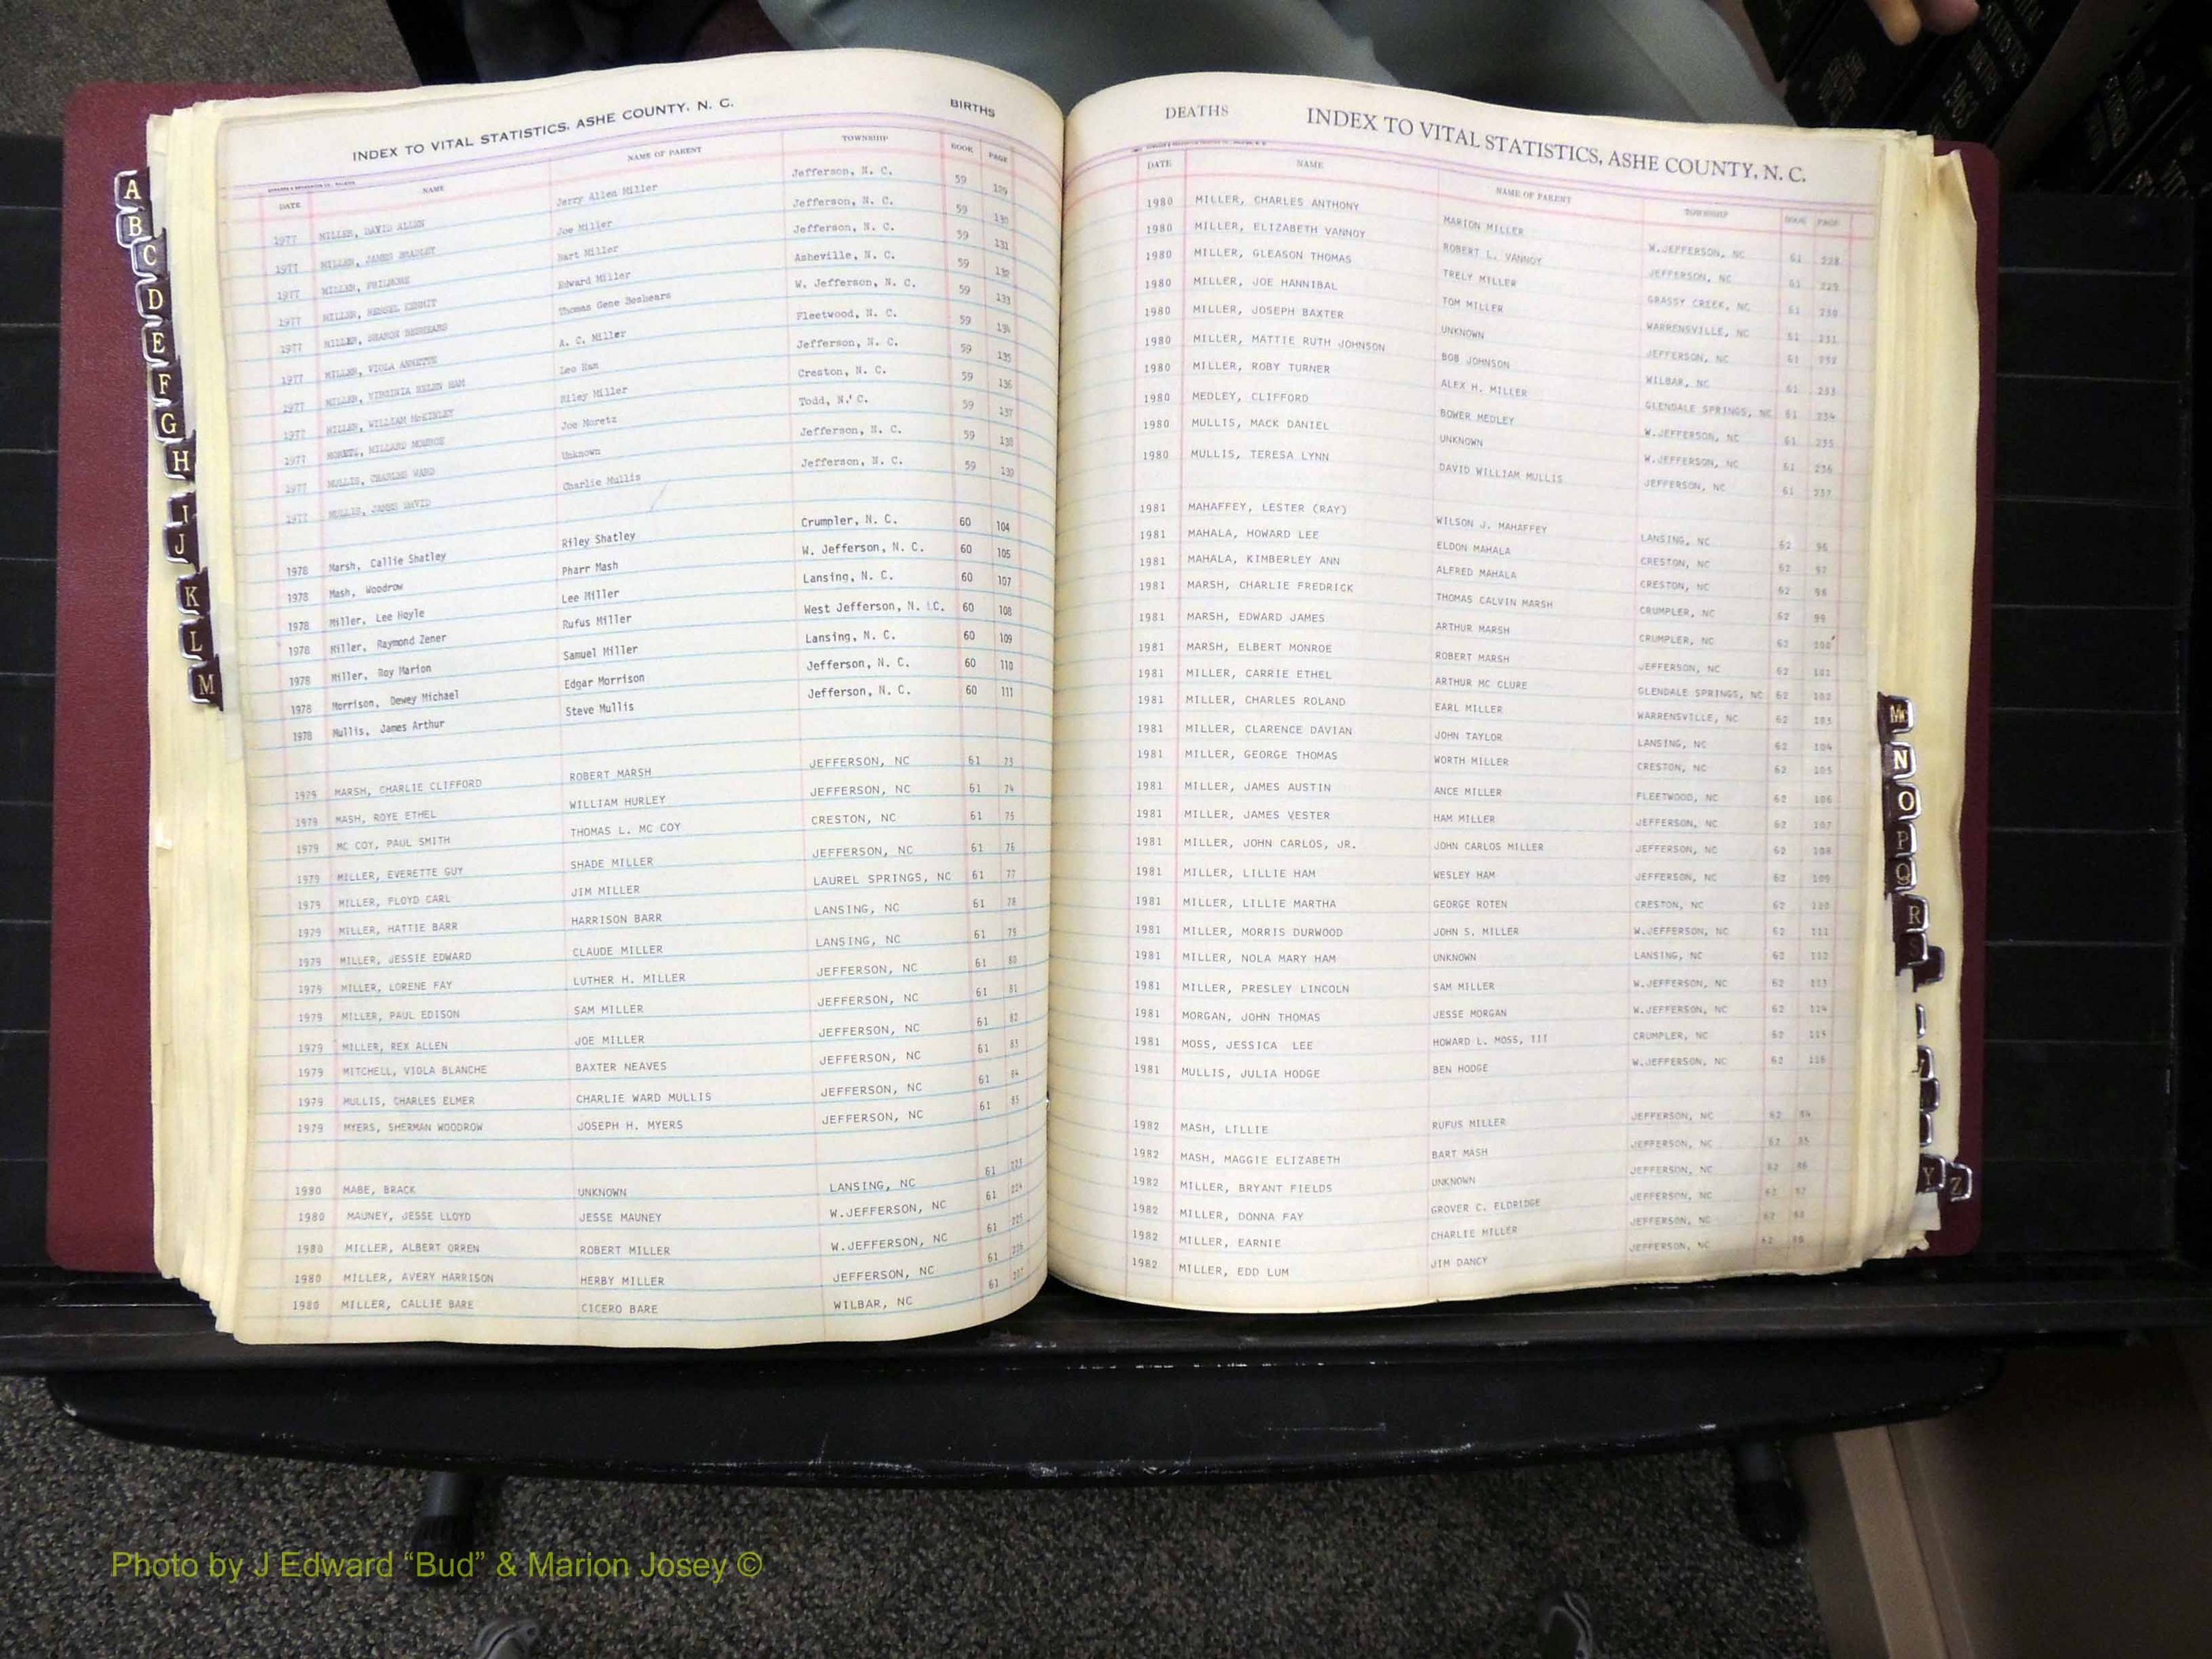 INDEX TO VITAL STATISTICS, ASHE COUNTY, N. C. BIRTHS
DATE NAME NAME OF PARENT TOWNSHIP BOOK PAGE
1977 MILLER, DAVID ALLEN Jerry Allen Miller Jefferson, N. C. 59 129
1977 MILLER, JAMES BRADLEY Joe Miller Jefferson, N. C. 59 130
1977 MILLER, Hart Miller Jefferson, N. C. 59 131
1977 MILLER, HESSEL KERMIT Edward Miller Asheville, N. C. 59 132
1977 MILLER, SHARON BESHEARS Thomas Gene Beshears W. Jefferson, N. C. 59 133
1977 MILLER, VIOLA ANNETTE A. C. Miller Fleetwood, N. C. 59 134
1977 MILLER, VIRGINIA HELEN HAM Leo Ham Jefferson, N. C. 59 135
1977 MILLER, WILLIAM McKINLEY Riley Miller Creston, N. C. 59 136
1977 MORETZ, MILLARD MONROE Joe Moretz Todd, N. C. 59 137
1977 MULLIS, CHARLES WARD Unknown Jefferson, N. C. 59 138
1977 MULLIS, JAMES DAVID Charlie Mullis Jefferson, N. C. 59 139
1978 Marsh, Callie Shatley Riley Shatley Crumpler, N. C. 60 104
1978 Mash, Woodrow Pharr Mash W. Jefferson, N. C. 60 105
1978 Miller, Lee Hoyle Lee Miller Lansing, N. C. 60 107
1978 Miller, Raymond Zener Rufus Miller West Jefferson, N. C. 60 108
1978 Miller, Roy Marion Samuel Miller Lansing, N. C. 60 109
1978 Morrison, Dewey Michael Edgar Morrison Jefferson, N. C. 60 110
1978 Mullis, James Arthur Steve Mullis Jefferson, N. C. 60 111
1979 MARSH, CHARLIE CLIFFORD ROBERT MARSH JEFFERSON, NC 61 73
1979 MASH, ROYE ETHEL WILLIAM HURLEY JEFFERSON, NC 61 74
1979 MC COY, PAUL SMITH THOMAS L. MC COY CRESTON, NC 61 75
1979 MILLER, EVERETTE GUY SHADE MILLER JEFFERSON, NC 61 76
1979 MILLER, FLOYD CARL JIM MILLER LAUREL SPRINGS, NC 61 77
1979 MILLER, HATTIE BARR HARRISON BARR LANSING, NC 61 78
1979 MILLER, JESSIE EDWARD CLAUDE MILLER LANSING, NC 61 79
1979 MILLER, LORENE FAY LUTHER H. MILLER JEFFERSON, NC 61 80
1979 MILLER, PAUL EDISON SAM MILLER JEFFERSON, NC 61 81
1979 MILLER, REX ALLEN JOE MILLER JEFFERSON, NC 61 82
1979 MITCHELL, VIOLA BLANCHE BAXTER NEAVES JEFFERSON, NC 61 83
1979 MULLIS, CHARLES ELMER CHARLIE WARD MULLIS JEFFERSON, NC 61 84
1979 MYERS, SHERMAN WOODROW JOSEPH H. MYERS JEFFERSON, NC 61 85
1980 MABE, BRACK UNKNOWN LANSING, NC 61 223
1980 MAUNEY, JESSE LLOYD JESSE MAUNEY W.JEFFERSON, NC 61 224
1980 MILLER, ALBERT ORREN ROBERT MILLER W.JEFFERSON, NC 61 225
1980 MILLER, AVERY HARRISON HERBY MILLER JEFFERSON, NC 61 226
1980 MILLER, CALLIE BARE CICERO BARE WILBAR, NC 61 227
A
B
C
D
E
F
G
H
I
J
K
L
M
DEATHS INDEX TO VITAL STATISTICS, ASHE COUNTY, N. C.
DATE NAME NAME OF PARENT TOWNSHIP BOOK PAGE
1980 MILLER, CHARLES ANTHONY MARION MILLER W.JEFFERSON, NC 61 228
1980 MILLER, ELIZABETH VANNOY ROBERT L. VANNOY JEFFERSON, NC 61 229
1980 MILLER, GLEASON THOMAS TRELY MILLER GRASSY CREEK, NC 61 230
1980 MILLER, JOE HANNIBAL TOM MILLER WARRENSVILLE, NC 61 231
1980 MILLER, JOSEPH BAXTER UNKNOWN JEFFERSON, NC 61 232
1980 MILLER, MATTIE RUTH JOHNSON BOB JOHNSON WILBAR, NC 61 233
1980 MILLER, ROBY TURNER ALEX H. MILLER GLENDALE SPRINGS, NC 61 234
1980 MEDLEY, CLIFFORD BOWER MEDLEY W.JEFFERSON, NC 61 235
1980 MULLIS, MACK DANIEL UNKNOWN W.JEFFERSON, NC 61 236
1980 MULLIS, TERESA LYNN DAVID WILLIAM MULLIS JEFFERSON, NC 61 237
1981 MAHAFFEY, LESTER (RAY) WILSON J. MAHAFFEY LANSING, NC 62 96
1981 MAHALA, HOWARD LEE ELDON MAHALA CRESTON, NC 62 97
1981 MAHALA, KIMBERLEY ANN ALFRED MAHALA CRESTON, NC 62 98
1981 MARSH, CHARLIE FREDRICK THOMAS CALVIN MARSH CRUMPLER, NC 62 99
1981 MARSH, EDWARD JAMES ARTHUR MARSH CRUMPLER, NC 62 100
1981 MARSH, ELBERT MONROE ROBERT MARSH JEFFERSON, NC 62 101
1981 MILLER, CARRIE ETHEL ARTHUR MC CLURE GLENDALE SPRINGS, NC 62 102
1981 MILLER, CHARLES ROLAND EARL MILLER WARRENSVILLE, NC 62 103
1981 MILLER, CLARENCE DAVIAN JOHN TAYLOR LANSING, NC 62 104
1981 MILLER, GEORGE THOMAS WORTH MILLER CRESTON, NC 62 105
1981 MILLER, JAMES AUSTIN ANCE MILLER FLEETWOOD, NC 62 106
1981 MILLER, JAMES VESTER HAM MILLER JEFFERSON, NC 62 107
1981 MILLER, JOHN CARLOS, JR. JOHN CARLOS MILLER JEFFERSON, NC 62 108
1981 MILLER, LILLIE HAM WESLEY HAM JEFFERSON, NC 62 109
1981 MILLER, LILLIE MARTHA GEORGE ROTEN CRESTON, NC 62 110
1981 MILLER, MORRIS DURWOOD JOHN S. MILLER W.JEFFERSON, NC 62 111
1981 MILLER, NOLA MARY HAM UNKNOWN LANSING, NC 62 112
1981 MILLER, PRESLEY LINCOLN SAM MILLER W.JEFFERSON, NC 62 113
1981 MORGAN, JOHN THOMAS JESSE MORGAN W.JEFFERSON, NC 62 114
1981 MOSS, JESSICA LEE HOWARD L. MOSS, III CRUMPLER, NC 62 115
1981 MULLIS, JULIA HODGE BEN HODGE W.JEFFERSON, NC 62 116
1982 MASH, LILLIE RUFUS MILLER JEFFERSON, NC 62 84
1982 MASH, MAGGIE ELIZABETH BART MASH JEFFERSON, NC 62 85
1982 MILLER, BRYANT FIELDS UNKNOWN JEFFERSON, NC 62 86
1982 MILLER, DONNA FAY GROVER C. ELDRIDGE JEFFERSON, NC 62 87
1982 MILLER, EARNIE CHARLIE MILLER JEFFERSON, NC 62 88
1982 MILLER, EDD LUM JIM DANCY JEFFERSON, NC 62 89
Mc
N
O
P
Q
R
S
Y
Z
1963
Photo by J Edward “Bud” & Marion Josey ©